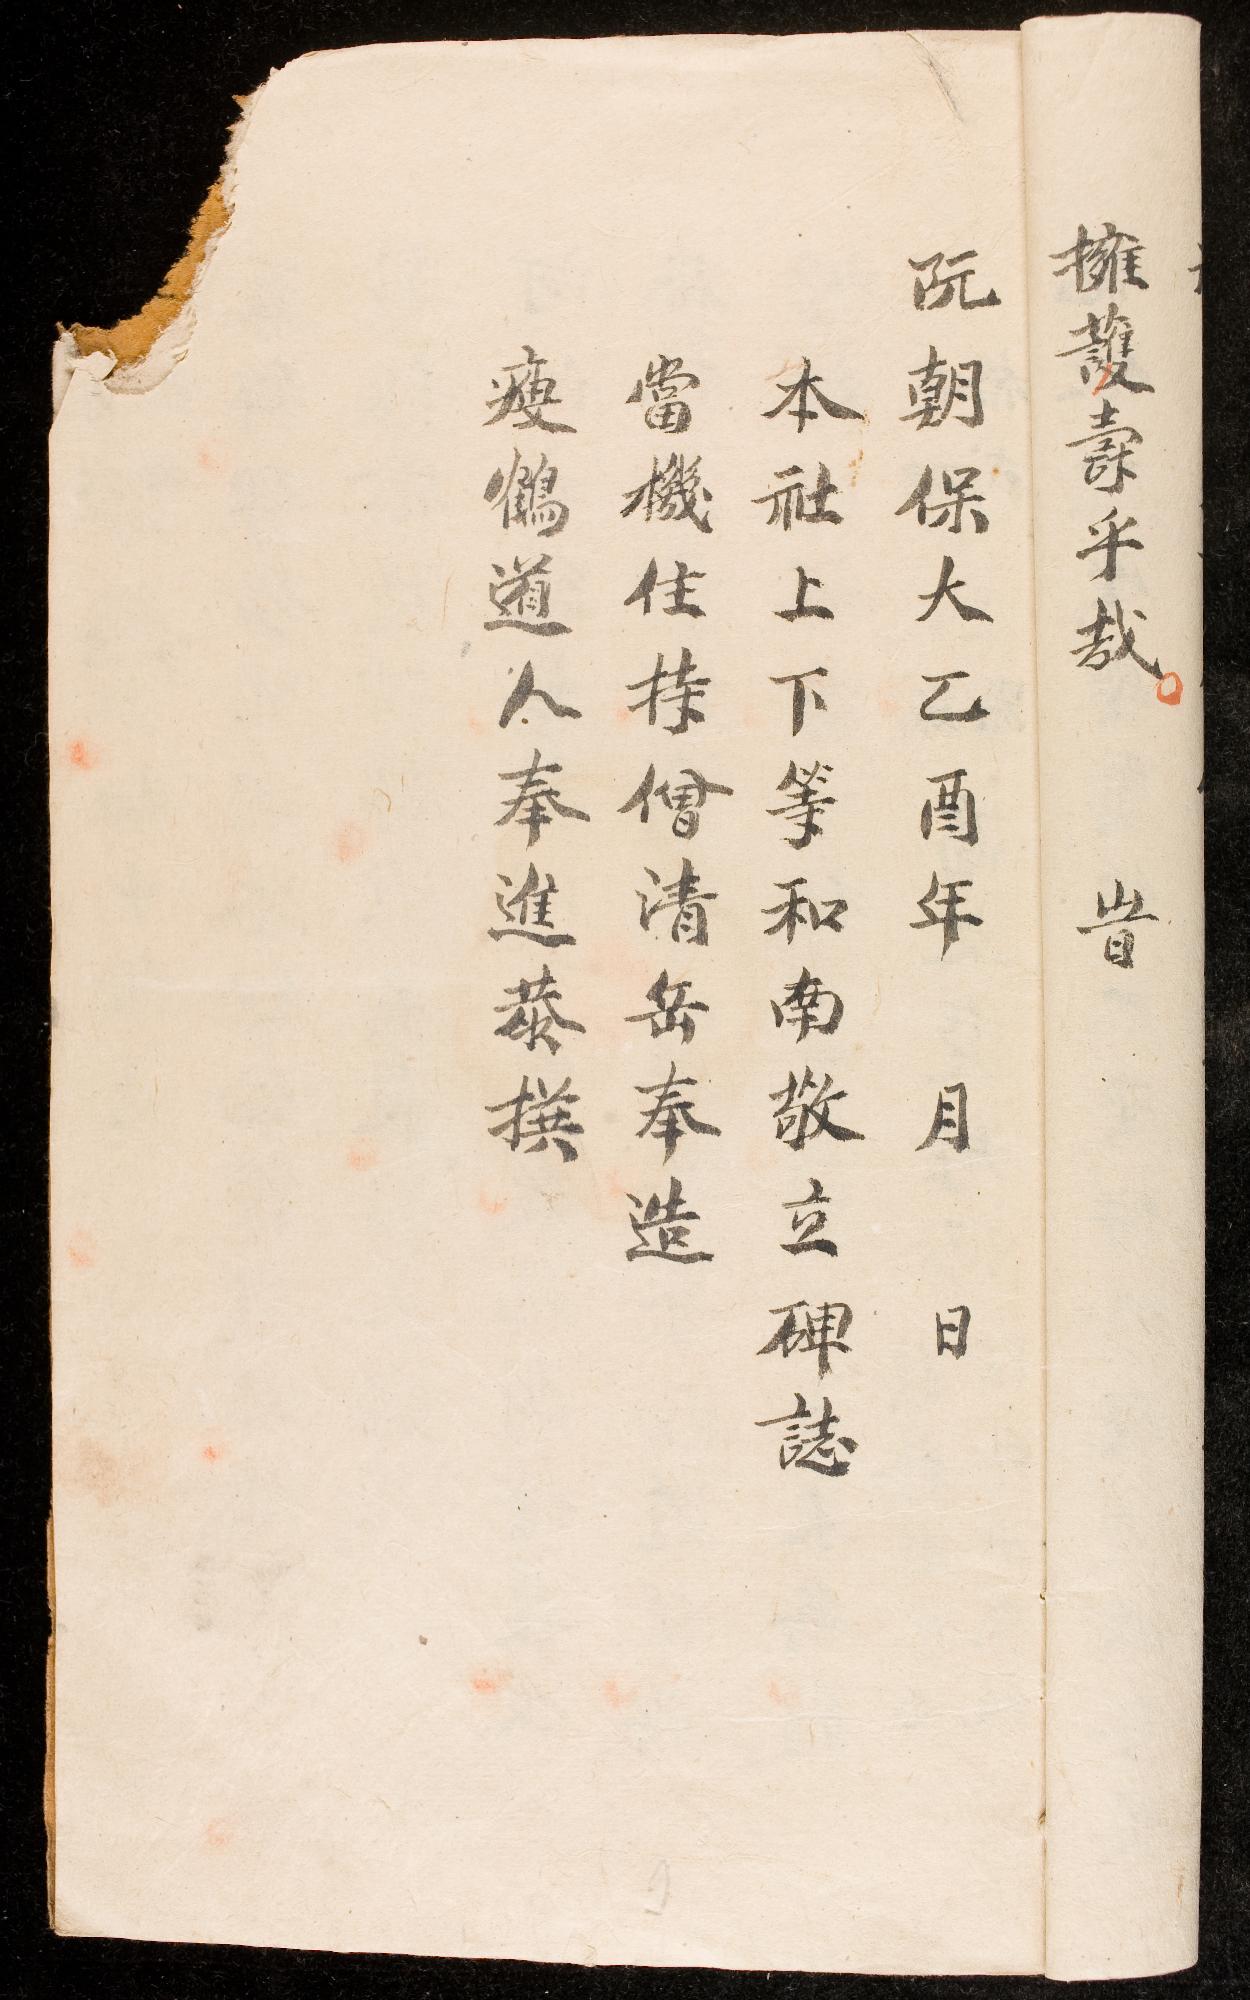 擁護壽乎哉。 旹
阮朝保大乙酉年 月 日
本社上下等和南敬立碑誌
當機住持僧清岳奉造
瘦鶴道人奉進恭撰